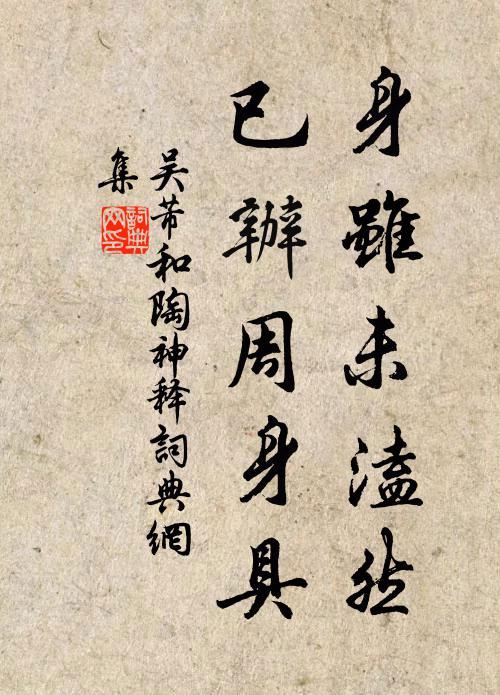 身雖未溘然
已辦周身具
吴芾和陶神释詞典網
集
詞典網印